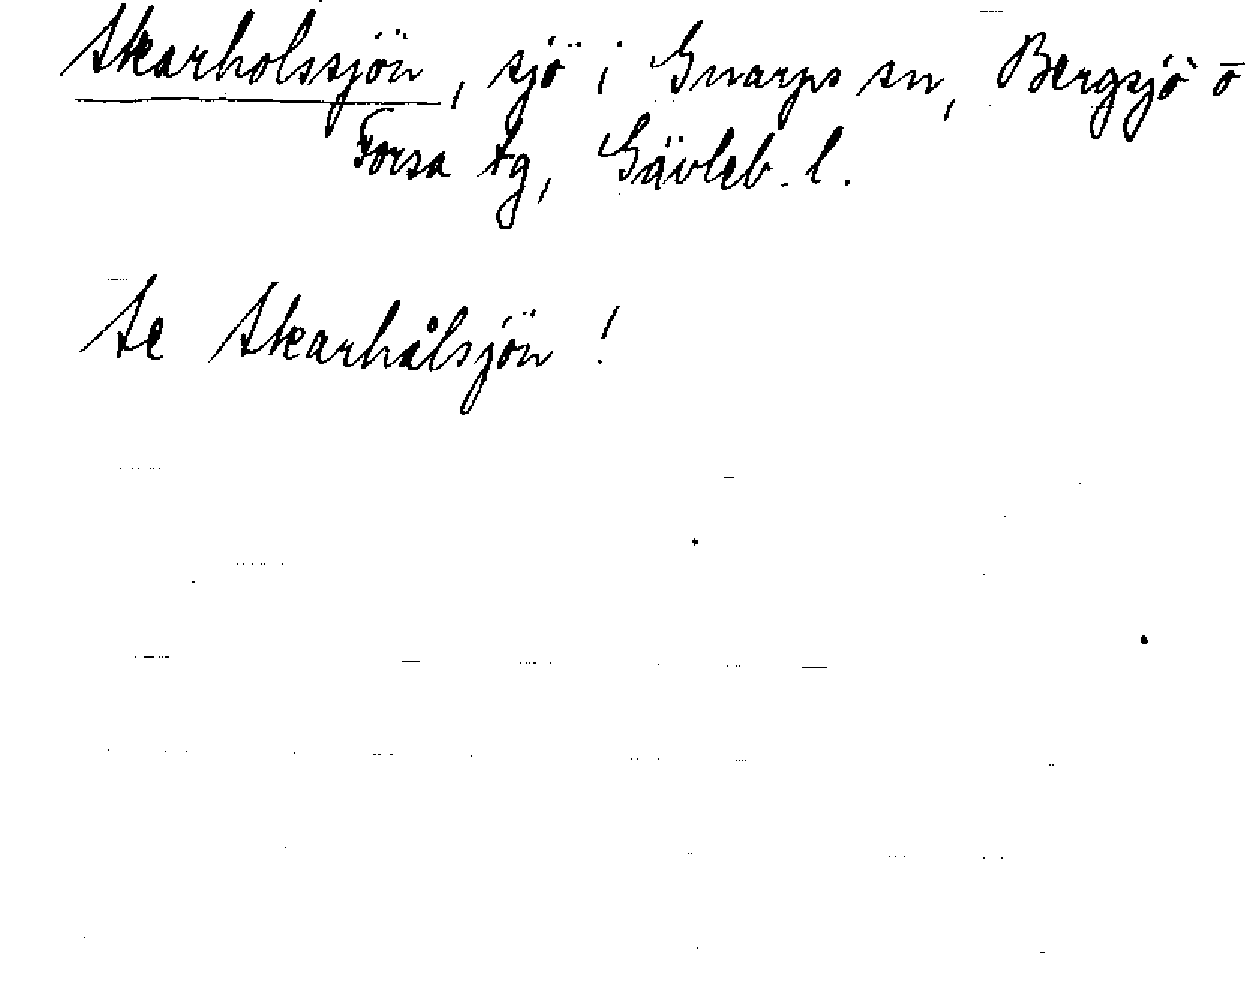 Skarholssjön, sjö i Gnarps sn, Bergsjö o
Forsa tg, Gävleb. l.
Se Skarhålsjön!